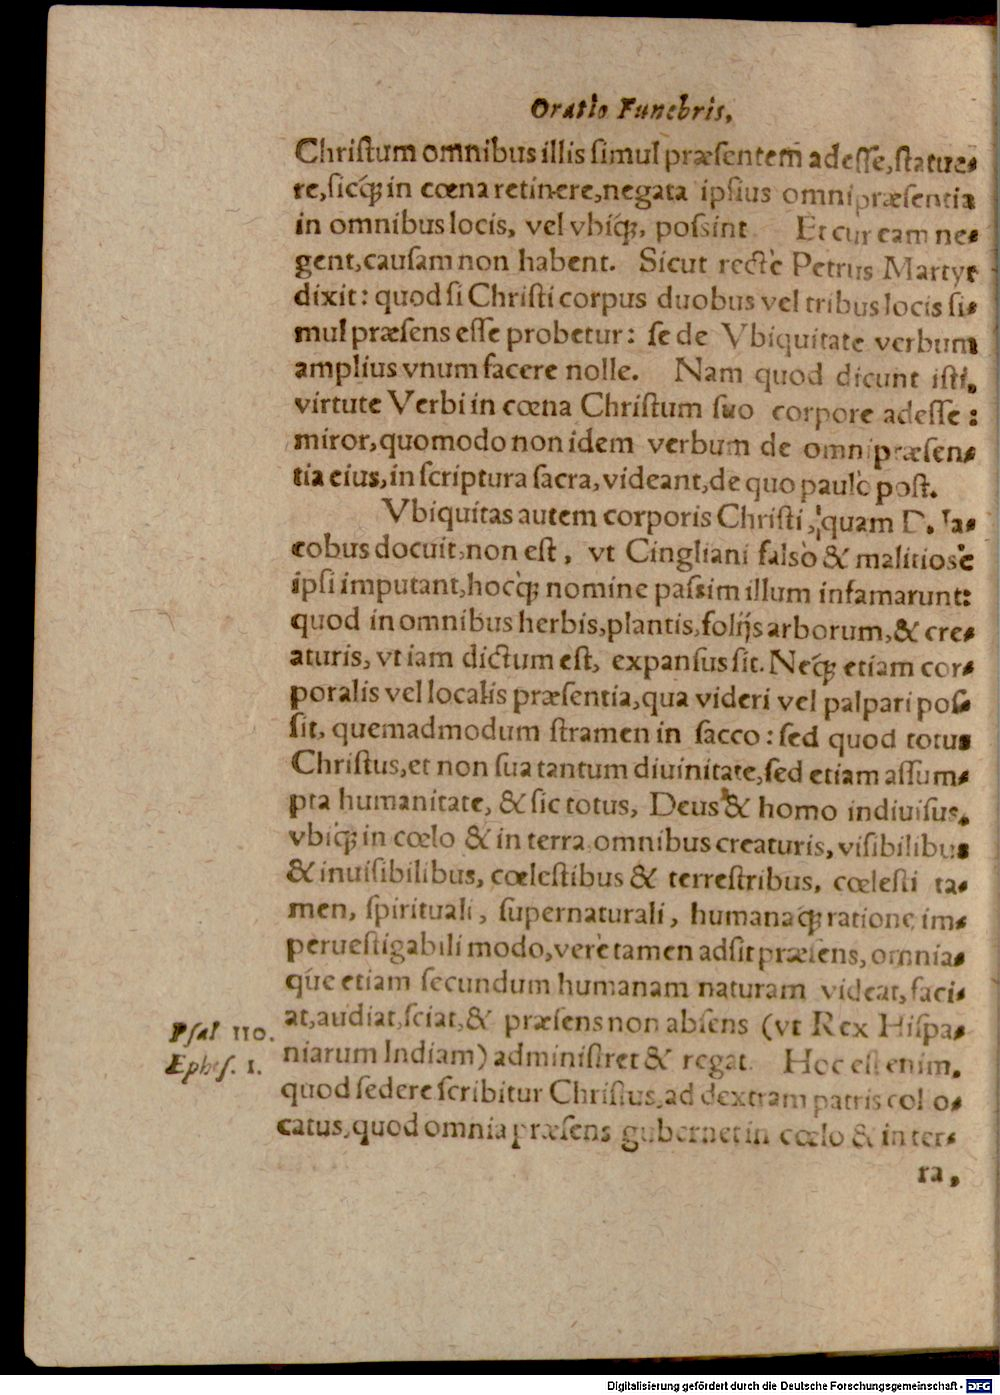 Oratio Funebris,
Christum omnibus illis simul præsentem adesse, statue-
re, sicq́; in cœna retinere, negata ipsius omnipræsentia
in omnibus locis, vel vbiq́;, possint Et cur eam ne-
gent, causam non habent. Sicut rectè Petrus Martyr
dixit: quod si Christi corpus duobus vel tribus locis si-
mul præsens esse probetur: se de Vbiquitate verbum
amplius vnum facere nolle. Nam quod dicunt isti,
virtute Verbi in cœna Christum suo corpore adesse:
miror, quomodo non idem verbum de omnipræsen-
tia eius, in scriptura sacra, videant, de quo paulò post.
Vbiquitas autem corporis Christi, quam D. Ia-
cobus docuit, non est, vt Cingliani falsò & malitiosè
ipsi imputant, hocq́; nomine passim illum infamarunt:
quod in omnibus herbis, plantis, folijs arborum, & cre-
aturis, vt iam dictum est, expansus sit. Neq́; etiam cor-
poralis vel localis præsentia, qua videri vel palpari pos-
sit, quemadmodum stramen in sacco: sed quod totus
Christus, et non sua tantum diuinitate, sed etiam assum-
pta humanitate, & sic totus, Deus & homo indiuisus,
vbiq́; in cœlo & in terra omnibus creaturis, visibilibus
& inuisibilibus, cœlestibus & terrestribus, cœlesti ta-
men, spirituali, supernaturali, humanaq́; ratione im-
peruestigabili modo, verè tamen adsit præsens, omnia-
q́ue etiam secundum humanam naturam videat, faci-
at, audiat, sciat, & præsens non absens (vt Rex Hispa-
niarum Indiam) administret & regat. Hoc est enim,
quod sedere scribitur Christus, ad dextram patris collo-
catus, quod omnia præsens gubernet in cœlo & in ter-
ra,
Psal 110.
Ephes. 1.
Digitalisierung gefördert durch die Deutsche Forschungsgemeinschaft - DFG